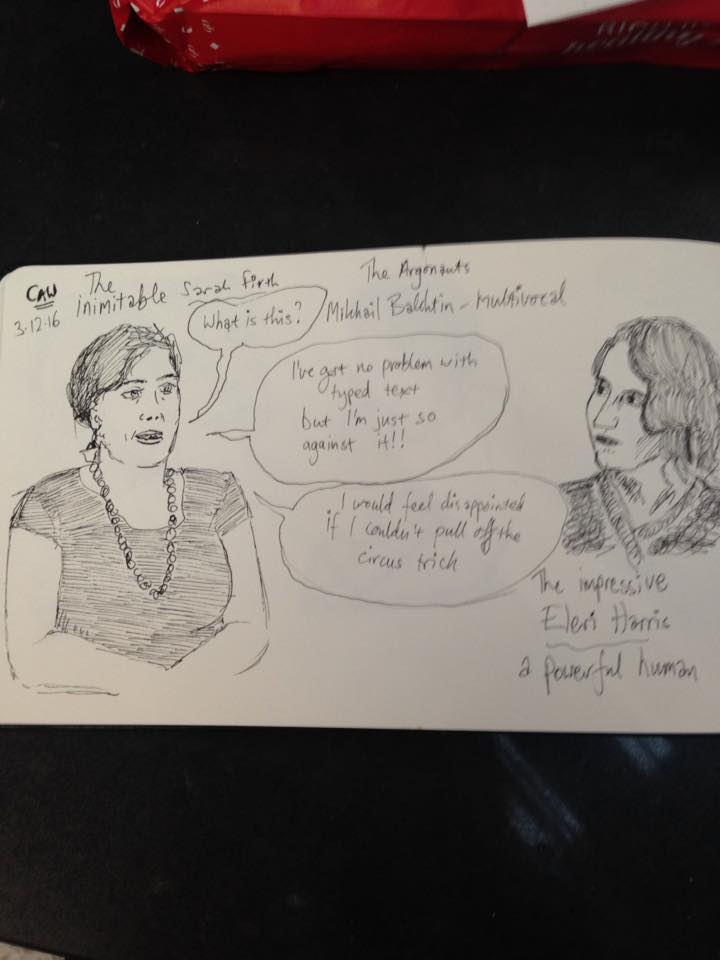 CAW
3.12.16
The
inimitable Sarah Firth
What is this?
The Argonauts
Mikhail Bakhtin - multivocal
I've got no problem with
typed text
but I'm just so
against it!!
I would feel disappointed
if I couldn't pull off the
circus trick
The impressive
Eleri Harris
a powerful human
healthy